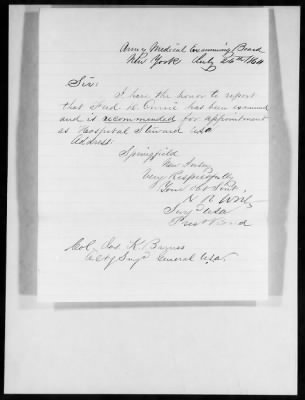 Army Medical Examining Board
New York July 26th 1864
Sir:
I have the honor to report
that Fred K. has been examined
and is recommended for appointment
as Hospital Steward USA
Address:
Springfield
New Jersey
Very Respectfully
Your Obt Svnt.
Surgn USA
Prest Board
Col. Jos. K. Barnes
Actg Surgn General U.S.A.